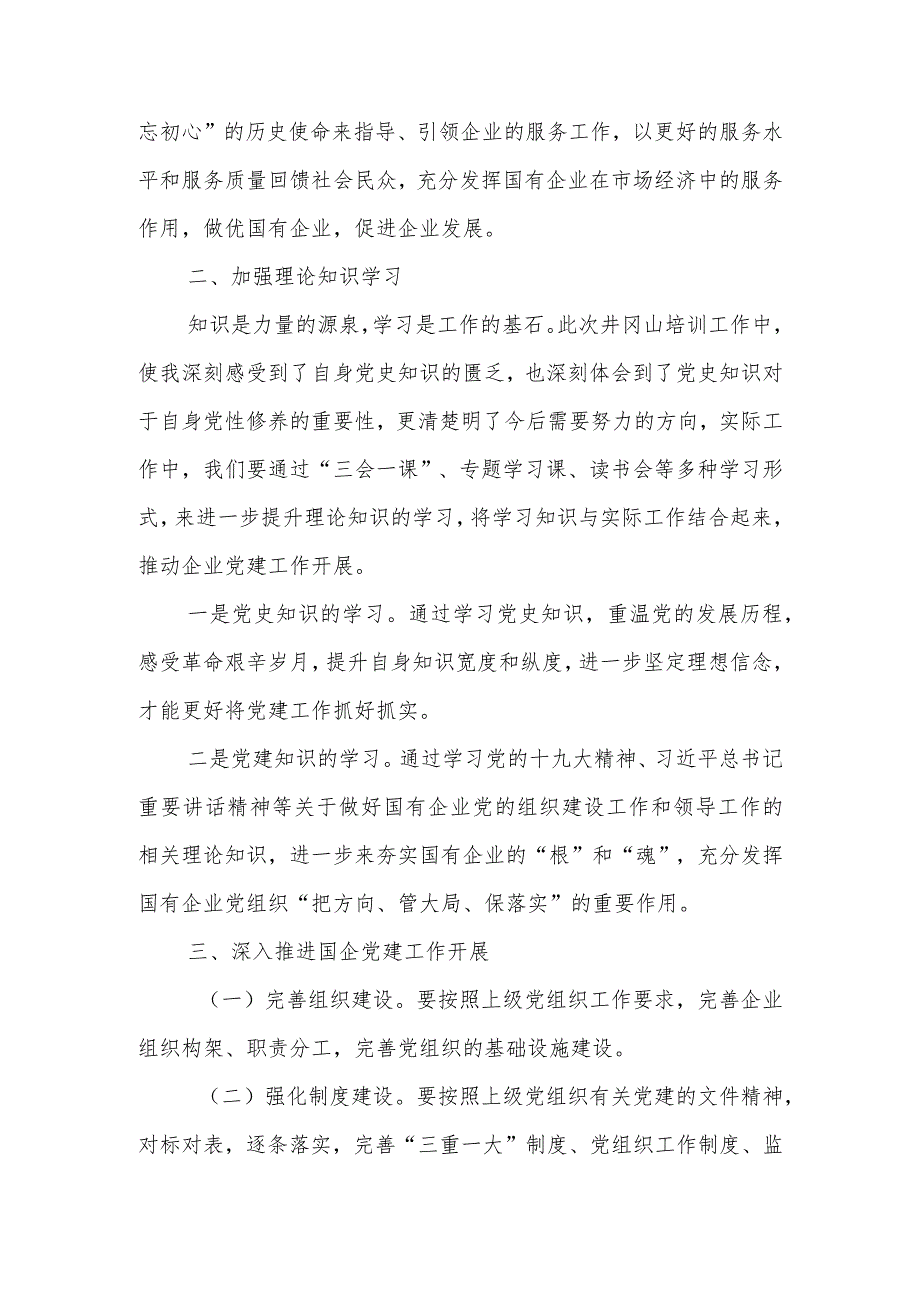 忘初心”的历史使命来指导、引领企业的服务工作，以更好的服务水
平和服务质量回馈社会民众，充分发挥国有企业在市场经济中的服务
作用，做优国有企业，促进企业发展。
二、加强理论知识学习
知识是力量的源泉，学习是工作的基石。此次井冈山培训工作中，
使我深刻感受到了自身党史知识的匮乏，也深刻体会到了党史知识对
于自身党性修养的重要性，更清楚明了今后需要努力的方向，实际工
作中，我们要通过“三会一课”、专题学习课、读书会等多种学习形
式，来进一步提升理论知识的学习，将学习知识与实际工作结合起来，
推动企业党建工作开展。
一是党史知识的学习。通过学习党史知识，重温党的发展历程，
感受革命艰辛岁月，提升自身知识宽度和纵度，进一步坚定理想信念，
才能更好将党建工作抓好抓实。
二是党建知识的学习。通过学习党的十九大精神、习近平总书记
重要讲话精神等关于做好国有企业党的组织建设工作和领导工作的
相关理论知识，进一步来夯实国有企业的“根”和“魂”，充分发挥
国有企业党组织“把方向、管大局、保落实”的重要作用。
三、深入推进国企党建工作开展
（一）完善组织建设。要按照上级党组织工作要求，完善企业
组织构架、职责分工，完善党组织的基础设施建设。
（二）强化制度建设。要按照上级党组织有关党建的文件精神，
对标对表，逐条落实，完善“三重一大”制度、党组织工作制度、监